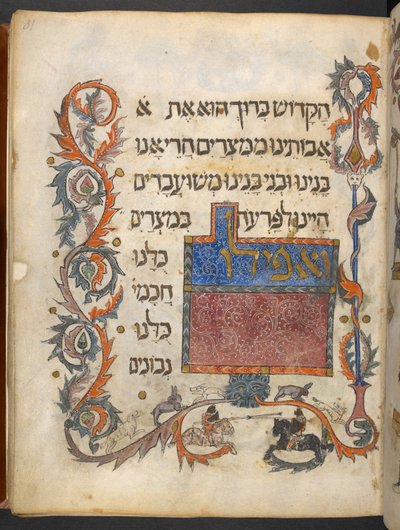 הקדוש ברוך הוא את א
אבותינו ממצרים הרי אנו
בנינו ובני בנינו משועבדים
היינו לפרעה במצרים
ואפילו
כולנו
חכמי
כולנו
נבונים